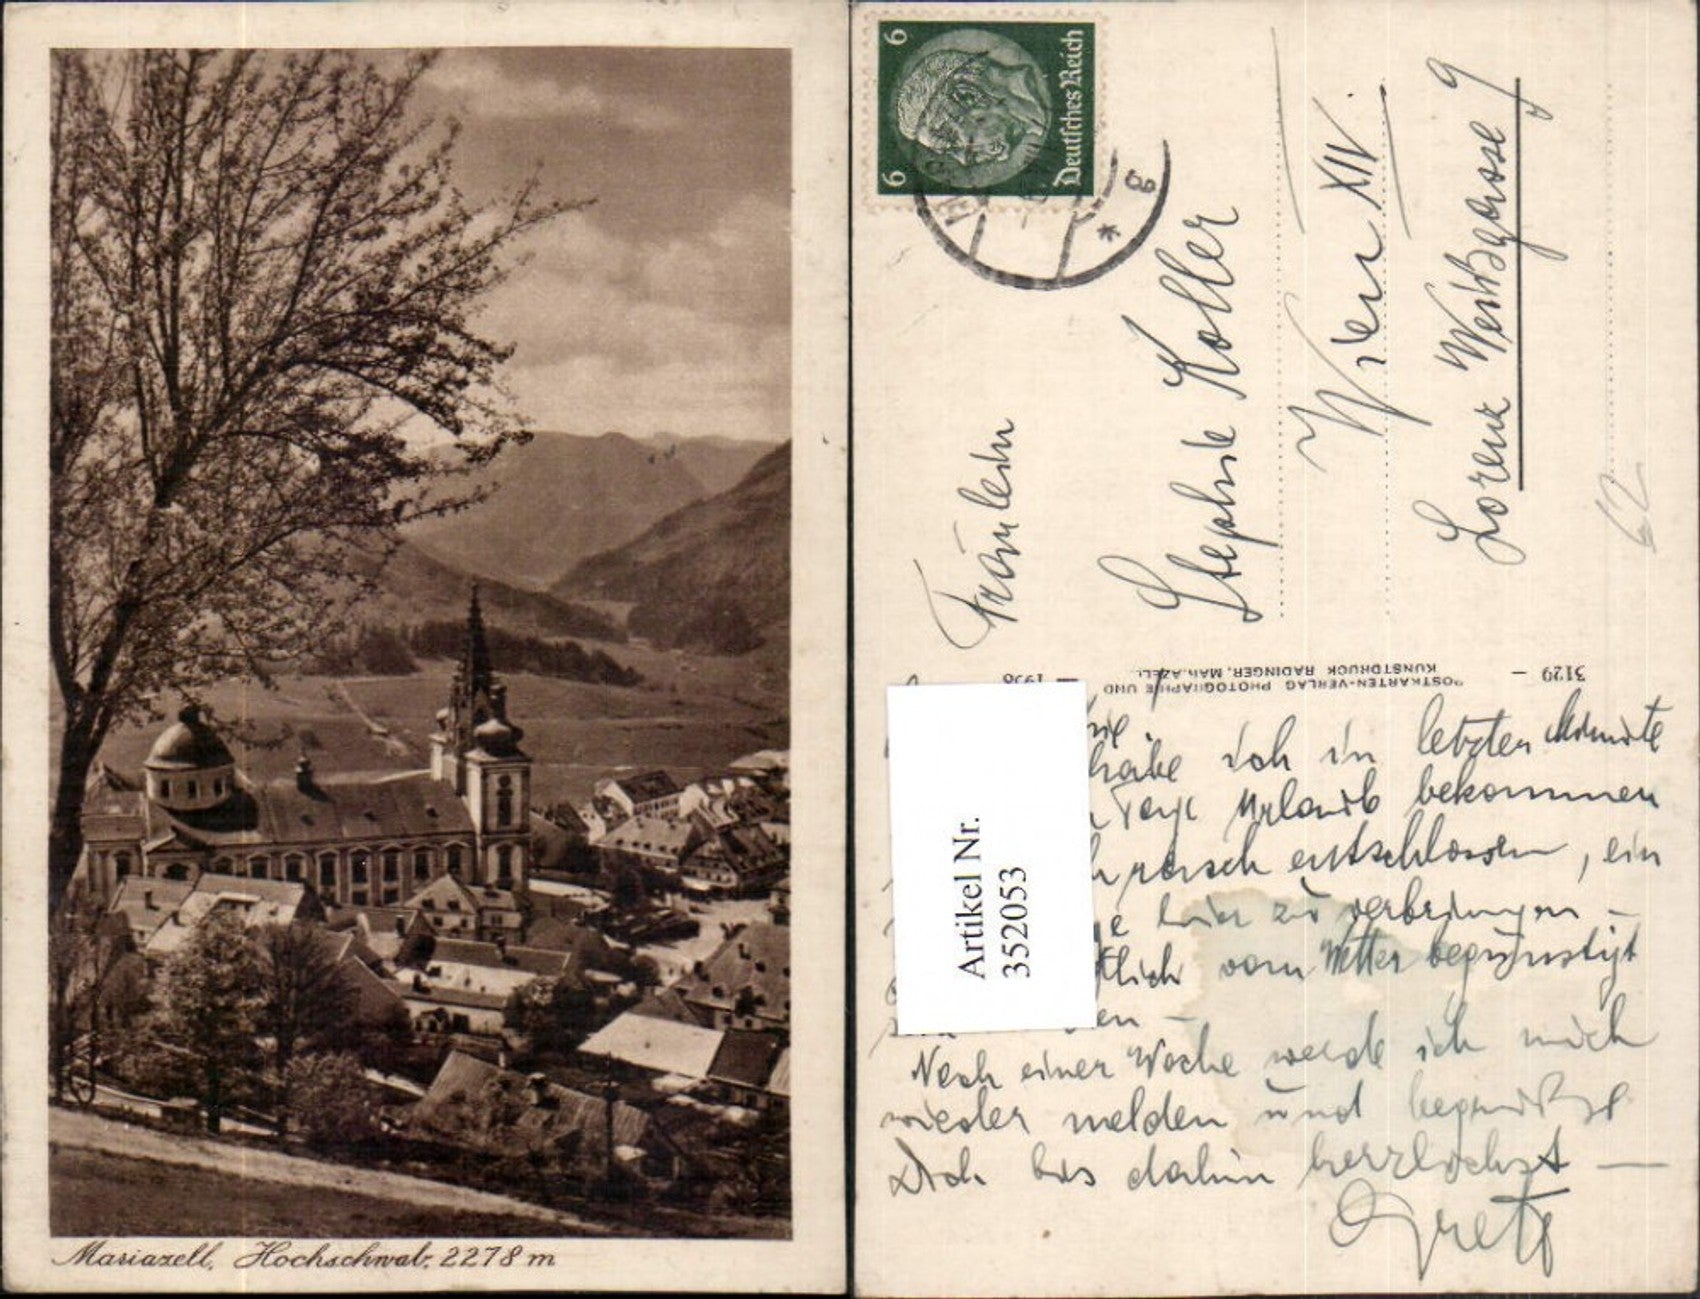 Mariazell, Hochschwab, 2278 m
6
6
Deutsches Reich
Fräulein
Stephnie Koller
Wien XIV.
Lorenz Weißgasse 9
62
3129 —
POSTKARTEN-VERLAG PHOTOGRAPHIE UND
KUNSTDRUCK RADINGER, MARIAZELL
— 1938
Artikel Nr.
3522053
habe ich in letzter Minute
Tage Urlaub bekommen
rasch entschlossen, ein
hier zu verbringen —
vom Wetter begünstigt
Nach einer Woche werde ich mich
wieder melden und begrüße
Dich bis dahin herzlichst —
Grete